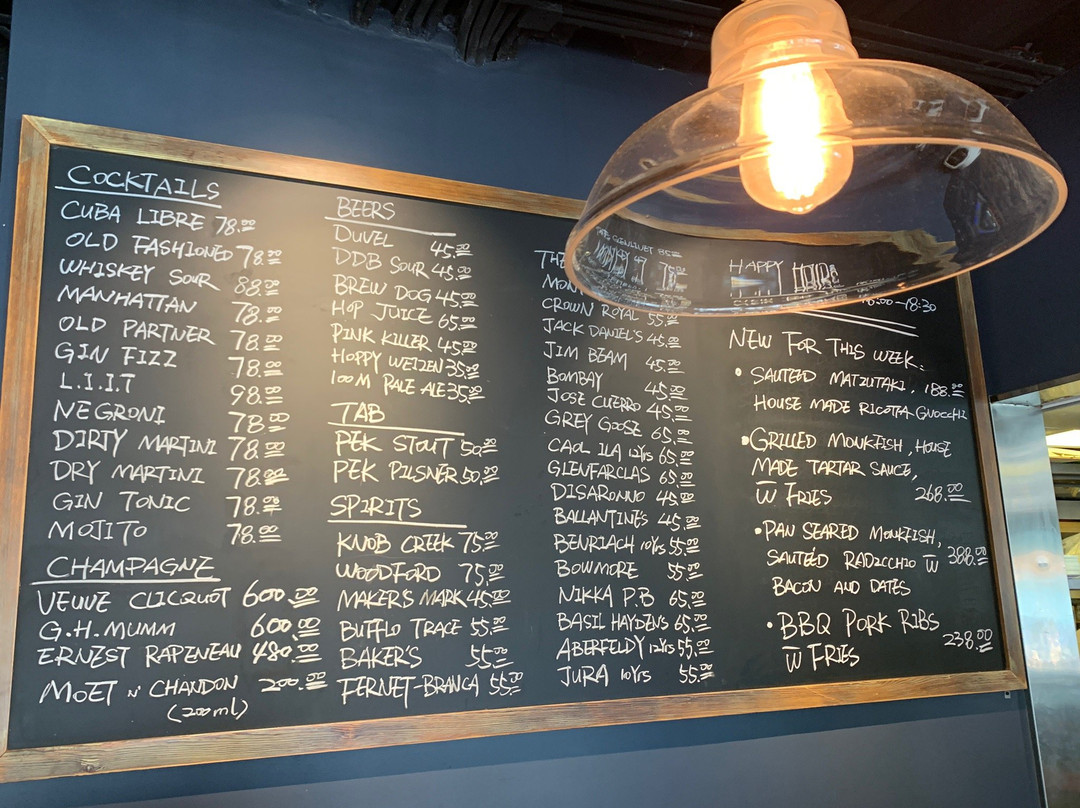 COCKTAILS
CUBA LIBRE 78.00
OLD FASHIONED 78.00
WHISKEY SOUR 88.00
MANHATTAN 78.00
OLD PARTNER 78.00
GIN FIZZ 78.00
L.I.I.T 98.00
NEGRONI 78.00
DIRTY MARTINI 78.00
DRY MARTINI 78.00
GIN TONIC 78.00
MOJITO 78.00
CHAMPAGNE
VEUVE CLICQUOT 600.00
G.H.MUMM 600.00
ERNEST RAPENEAU 480.00
MOET N' CHANDON 200.00
(200ml)
BEERS
DUVEL 45.00
DDB SOUR 45.00
BREW DOG 45.00
HOP JUICE 65.00
PINK KILLER 45.00
HOPPY WEIZEN 35.00
100M PALE ALE 35.00
TAB
PEK STOUT 50.00
PEK PILSNER 50.00
SPIRITS
KNOB CREEK 75.00
WOODFORD 75.00
MAKERS MARK 45.00
BUFFLO TRACE 55.00
BAKER'S 55.00
FERNET-BRANCA 55.00
THE
CROWN ROYAL 55.00
JACK DANIEL'S 45.00
JIM BEAM 45.00
BOMBAY 45.00
JOSE CUERRO 45.00
GREY GOOSE 65.00
CAOL ILA 12YRS 65.00
GLENFARCLAS 65.00
DISARONNO 45.00
BALLANTINE'S 45.00
BENRIACH 10YRS 55.00
BOWMORE 55.00
NIKKA P.B 65.00
BASIL HAYDENS 65.00
ABERFELDY 12YRS 55.00
JURA 10YRS 55.00
HAPPY HOUR
16:00-18:30
NEW FOR THIS WEEK:
• SAUTEED MATZUTAKI, 188.00
HOUSE MADE RICOTTA GNOCCHI
• GRILLED MONKFISH, HOUSE
MADE TARTAR SAUCE,
W FRIES 268.00
• PAN SEARED MONKFISH,
SAUTEED RADICCHIO W 388.00
BACON AND DATES
• BBQ PORK RIBS
W FRIES 238.00